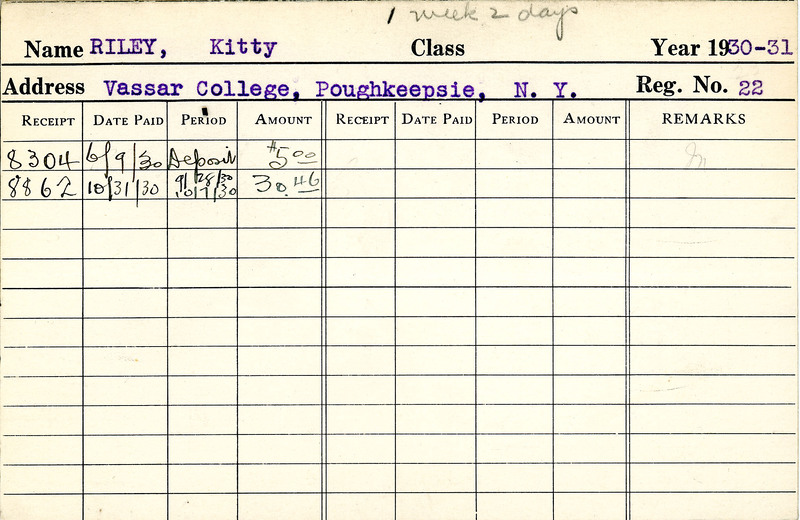 1 week 2 days
Name RILEY, Kitty Class Year 1930-31
Address Vassar College, Poughkeepsie, N. Y. Reg. No. 22
RECEIPT DATE PAID PERIOD AMOUNT RECEIPT DATE PAID PERIOD AMOUNT REMARKS
8304 6/9/30 Deposit $5.00
8862 10/31/30 9/28/30 10/7/30 30.46